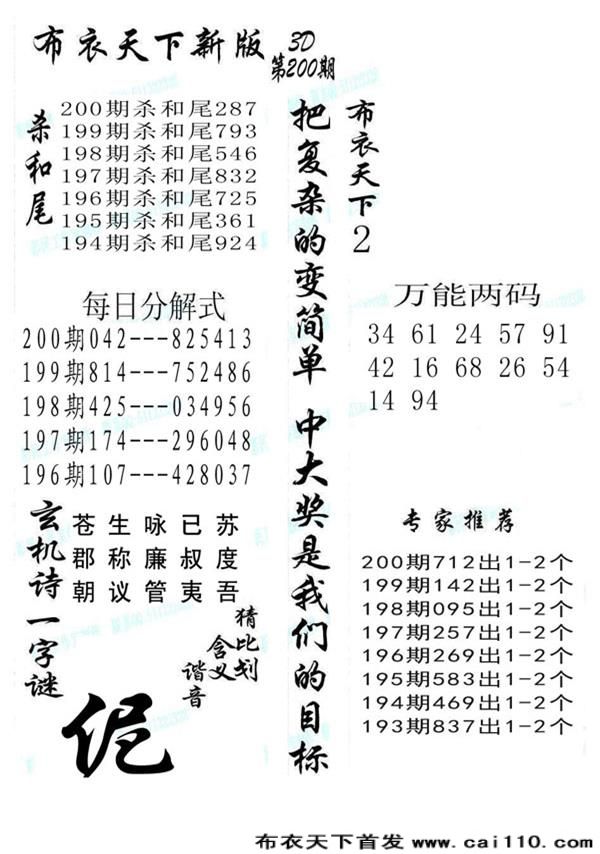 布衣天下新版
3D
第200期
杀和尾
200期杀和尾287
199期杀和尾793
198期杀和尾546
197期杀和尾832
196期杀和尾725
195期杀和尾361
194期杀和尾924
每日分解式
200期042---825413
199期814---752486
198期425---034956
197期174---296048
196期107---428037
玄机诗一字谜
苍生咏已苏
郡称廉叔度
朝议管夷吾
猜比划
含义
谐音
伲
把复杂的变简单 中大奖是我们的目标
布衣天下2
万能两码
34 61 24 57 91
42 16 68 26 54
14 94
专家推荐
200期712出1-2个
199期142出1-2个
198期095出1-2个
197期257出1-2个
196期269出1-2个
195期583出1-2个
194期469出1-2个
193期837出1-2个
布衣天下首发 www.cai110.com